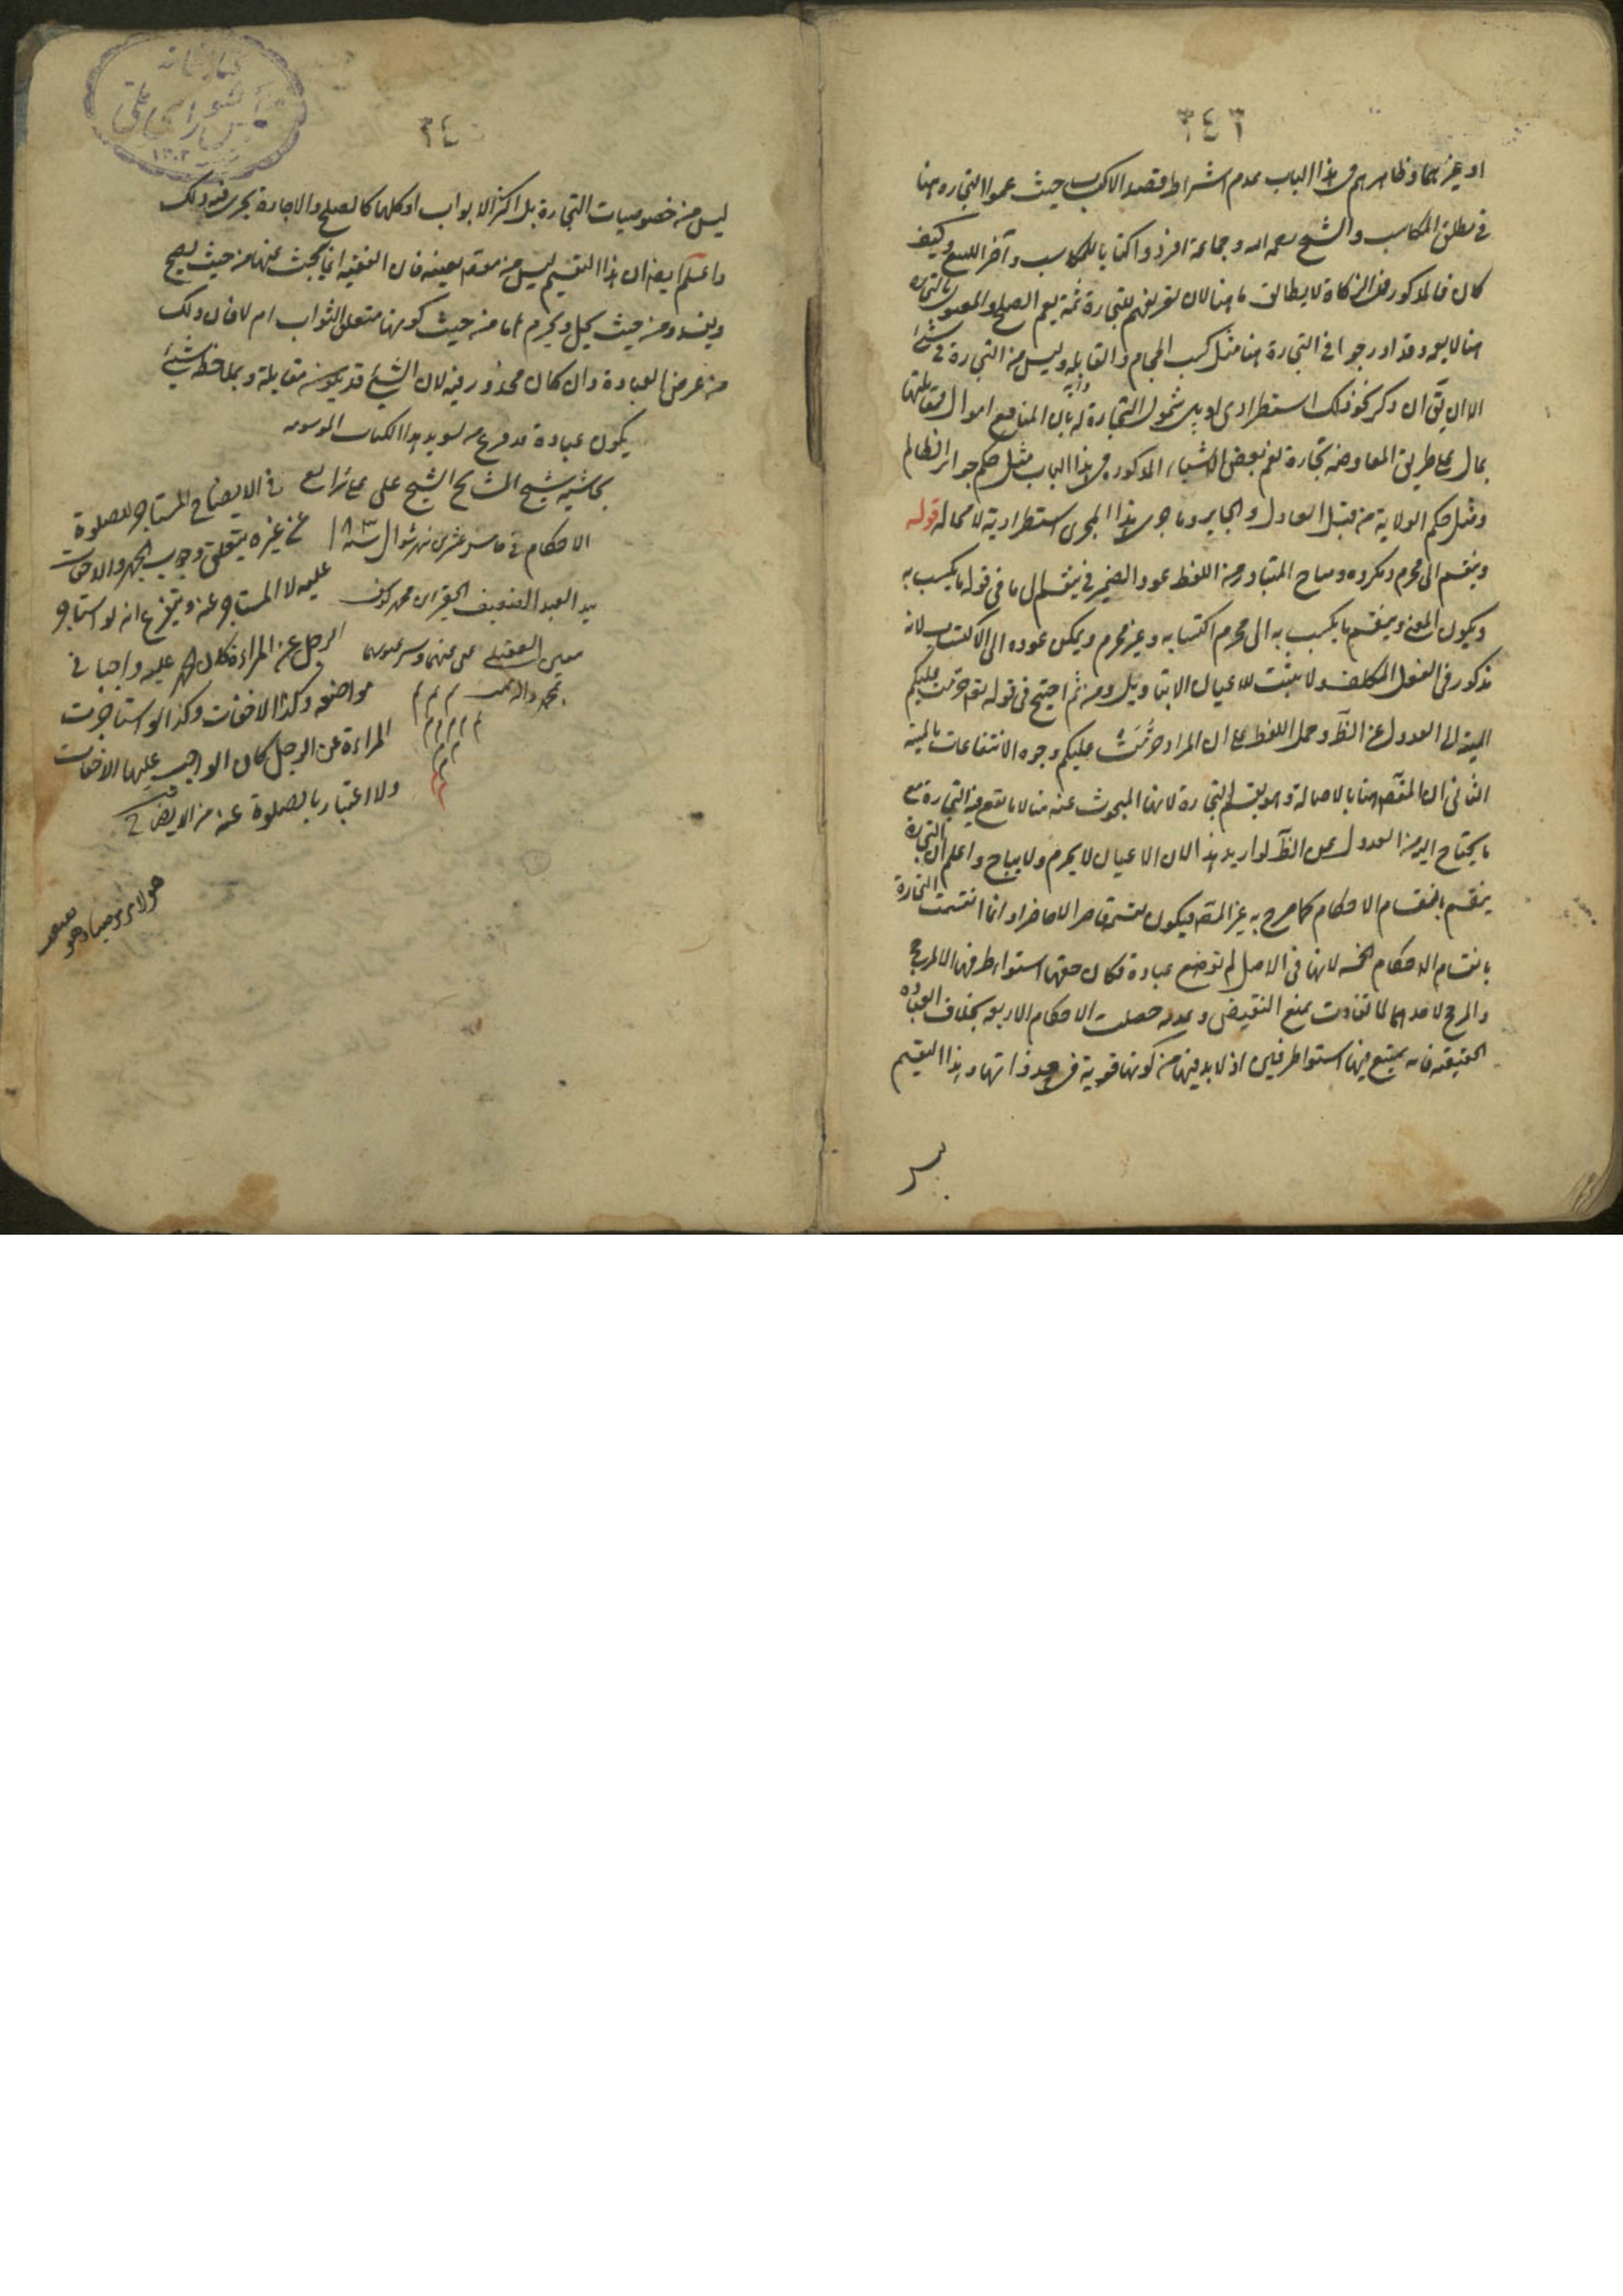 ٣٤٦
او غيرهما وظاهرهم في هذا الباب عدم اشتراط قصد الاكتساب حيث عموا التجارة هنا
في مطلق المكاسب والشيخ رحمه الله وجماعة افردوا كتابا للمكاسب وآخر للبيع وكيف
كان فالمذكور في الزكاة لا يطابق ما هنا لان تعريفهم للتجارة ثمة يعم الصلح والمعهود بالتجارة
هنا لا يعم وقد ادرجوا في التجارة هنا مثل كسب الحجام والقابلة وليس من التجارة في شئ
الا ان يق ان ذكر نحو ذلك استطرادي شمول التجارة له بان المنافع اموال فمقابلتها
بمال على طريق المعاوضة تجارة نعم بعض الاشياء المذكورة في هذا الباب مثل حكم جوائز الظالم
ومثل حكم الولاية من قبل العادل والجاير وما جرى هذا المجرى استطرادية لا محالة قوله
وينقسم الى محرم ومكروه ومباح المتبادر من اللفظ عود الضمير في ينقسم الى ما في قوله ما يكتسب به
ويكون المعنى وينقسم ما يكتسب به الى محرم اكتسابه وغير محرم ويمكن عوده الى الاكتساب لانه
مذكور في الفعل المكلف ولا يثبت للاعيان الا بتاويل ومن ثم احتيج في قوله تعم حرمت عليكم
الميتة الى العدول عن الظاهر وحمل اللفظ على ان المراد حرمت عليكم وجوه الانتفاعات بالميتة
الثاني ان المقصود هنا بالاصالة وهو تقسيم التجارة لانها المبحوث عنه هنا لا ما تقع فيه التجارة مع
ما يحتاج اليه من العدول عن الظاهر لو اريد هذا لان الاعيان لا يحرم ولا يباح واعلم ان التجارة
ينقسم بانقسام الاحكام كما صرح به غير المصنف فيكون انما انقسمت التجارة
بانقسام الاحكام الخمسة لانها في الاصل لم توضع عبادة فكان حقها استواء طرفيها الا لمرجح
والمرجح لاحدهما لما تفاوت بمنع النقيض وعدمه حصلت الاحكام الاربعة بخلاف العبادة
الحقيقية فانه يمتنع فيها استواء طرفين اذ لا بد فيها من كونها قربة في حد ذاتها وهذا التقسيم
ليس
كتابخانه
مجلس شورای ملی
١٣٠٢
٣٤
ليس من خصوصيات التجارة بل اكثر الابواب او كلها كالصلح والاجارة يجري فيه ذلك
واعلم ايضا ان هذا التقسيم ليس من مقصد بعينه فان الفقيه انما يبحث عنها من حيث يصح
ويفسد ومن حيث يحل ويحرم اما من حيث كونها متعلق الثواب ام لا فان ذلك
من عرض العبادة وان كان محذور فيه لان الشئ قد يكون مقابلة وبملاحظة شئ
يكون عبادة قد فرغ من تسويد هذا الكتاب الموسوم
بحاشية شيخ المشايخ الشيخ علي على شرايع
الاحكام في خامس عشرين شهر شوال سنة ١٠٨٣
بيد العبد الضعيف الحقير
عفى عنهما وستر عيوبهما
بمحمد وآله
في الايضاح المستاجر للصلوة
عن غيره يتعلق وجوب الجهر والاخفات
عليه لا المستاجر عنه ويتفرع انه لو استاجر
الرجل عن المراءة كان الجهر عليه واجبا في
مواضعه وكذا الاخفات وكذا لو استاجرت
المراءة عن الرجل كان الواجب عليها الاخفات
ولا اعتبار بالصلوة عنه من الايضاح